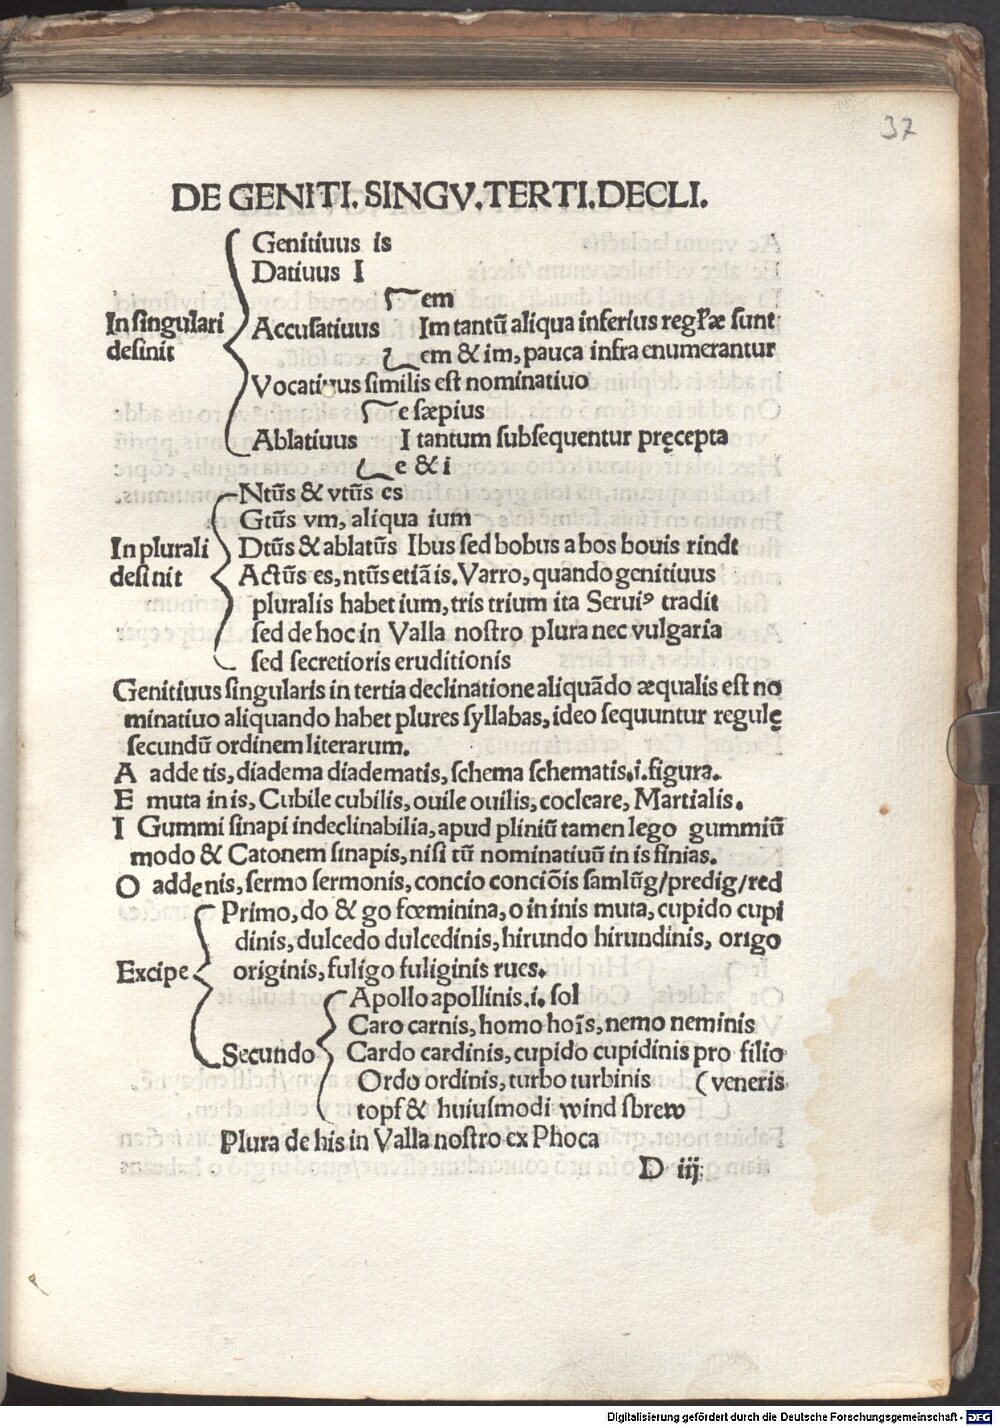 37
DE GENITI. SINGV. TERTI. DECLI.
Genitiuus is
Datiuus I
em
In singulari
desinit
Accusatiuus Im tantū aliqua inferius regl'æ sunt
em & im, pauca infra enumerantur
Vocatiuus similis est nominatiuo
e sæpius
Ablatiuus I tantum subsequentur pręcepta
e & i
Ntūs & vtūs es
Gtūs vm, aliqua ium
In plurali
desinit
Dtūs & ablatūs Ibus sed bobus a bos bouis rindt
Actūs es, ntūs etiā is. Varro, quando genitiuus
pluralis habet ium, tris trium ita Seruiꝰ tradit
sed de hoc in Valla nostro plura nec vulgaria
sed secretioris eruditionis
Genitiuus singularis in tertia declinatione aliquādo æqualis est no
minatiuo aliquando habet plures syllabas, ideo sequuntur regulę
secundū ordinem literarum.
A adde tis, diadema diadematis, schema schematis.i.figura.
E muta in is, Cubile cubilis, ouile ouilis, cocleare, Martialis.
I Gummi sinapi indeclinabilia, apud pliniū tamen lego gummiū
modo & Catonem sinapis, nisi tū nominatiuū in is finias.
O adde nis, sermo sermonis, concio conciōis samlūg/predig/red
Excipe
Primo, do & go fœminina, o in inis muta, cupido cupi
dinis, dulcedo dulcedinis, hirundo hirundinis, origo
originis, fuligo fuliginis rues.
Secundo
Apollo apollinis.i. sol
Caro carnis, homo hoīs, nemo neminis
Cardo cardinis, cupido cupidinis pro filio
Ordo ordinis, turbo turbinis (veneris
topf & huiusmodi wind sbrew
Plura de his in Valla nostro ex Phoca
D iij
Digitalisierung gefördert durch die Deutsche Forschungsgemeinschaft - DFG